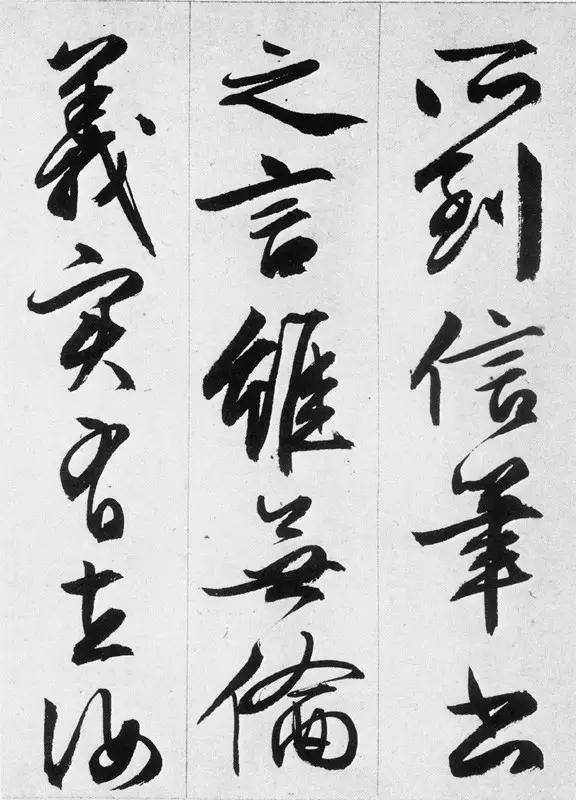 所到信筆書
之言雖無倫
義實有在汝